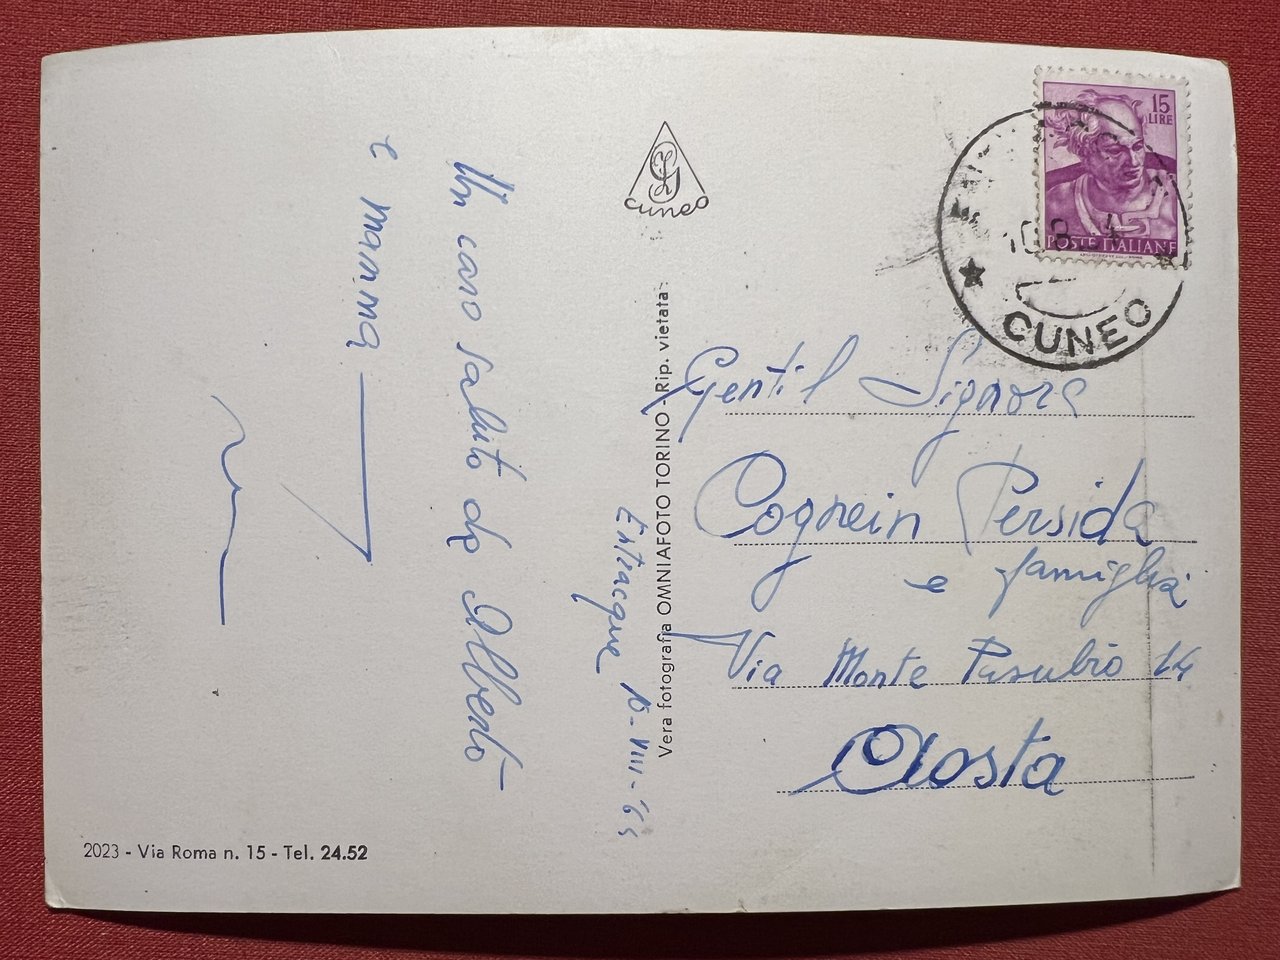 Un caro saluto da Alberto
e mamma
Entracque 10-VIII-64
CUNEO
Vera fotografia OMNIAFOTO TORINO - Rip. vietata
15
LIRE
POSTE ITALIANE
CUNEO
Gentil Signora
Cognein Persida
e famiglia
Via Monte Pasubio 14
Aosta
2023 - Via Roma n. 15 - Tel. 24.52